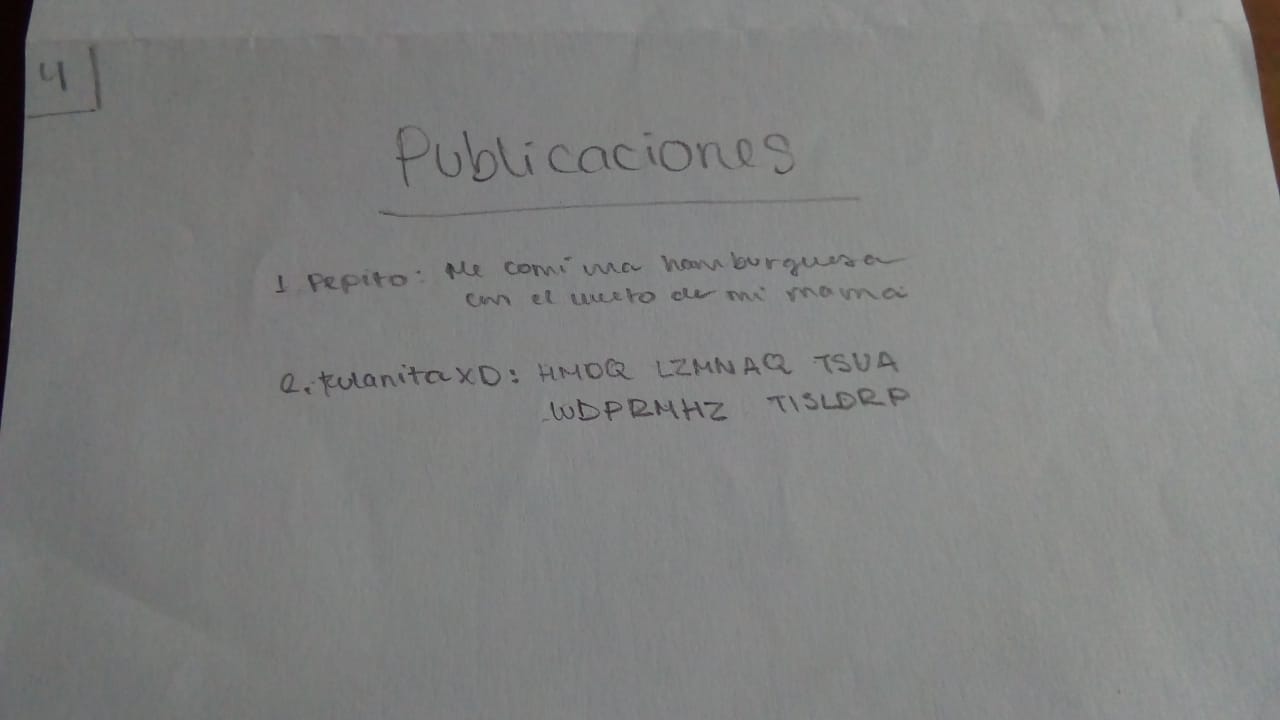 4
Publicaciones
1 Pepito: Me comí una hamburguesa
con el vuelto de mi mamá
2. fulanitaXD: HMDQ LZMNAQ TSUA
WDPRMHZ TISLDRP